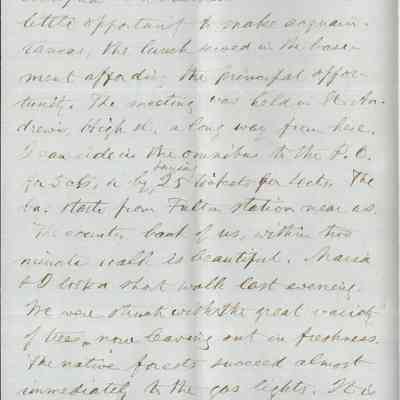 little opportunity to make acquain-
tances, the lunch served in the base-
ment affording the principal oppor-
tunity. The meeting was held in St. An-
drew's, High St. a long way from here.
I can ride in the omnibus to the P. O.
for 5 cts. or by buying 25 tickets for 100 cts. The
bus starts from Fulton station near us.
The country back of us, within two
minute walk is beautiful. Maria
& I took a short walk last evening.
We were struck with the great variety
of trees, now leaving out in freshness.
The native forests succeed almost
immediately to the gas lights. It is